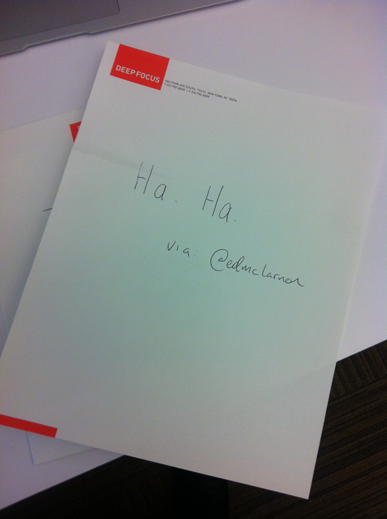 DEEP FOCUS
Ha. Ha.
via: @edmclarnon